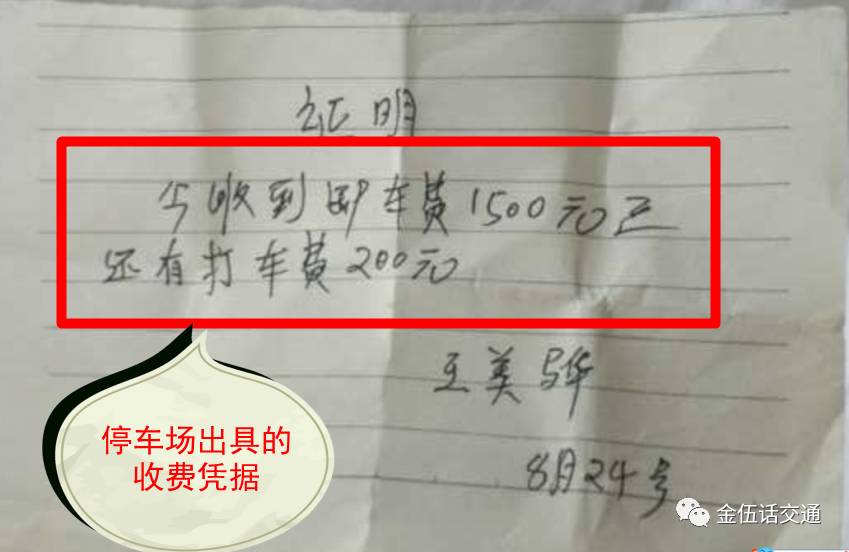 证明
今收到卸车费1500元正
还有打车费200元
王美骅
8月24号
停车场出具的
收费凭据
金伍话交通